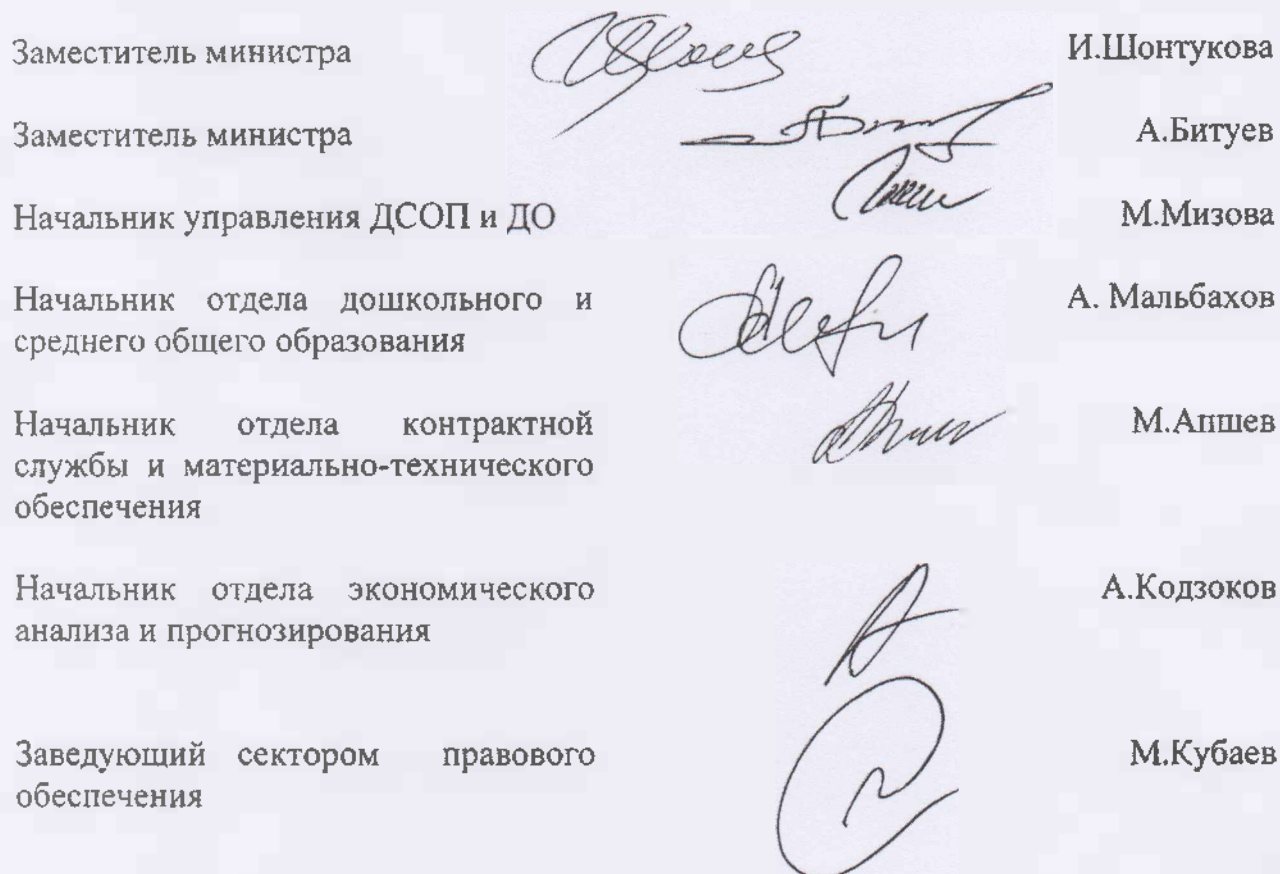 Заместитель министра И.Шонтукова
Заместитель министра А.Битуев
Начальник управления ДСОП и ДО М.Мизова
Начальник отдела дошкольного и А. Мальбахов
среднего общего образования
Начальник отдела контрактной М.Апшев
службы и материально-технического
обеспечения
Начальник отдела экономического А.Кодзоков
анализа и прогнозирования
Заведующий сектором правового М.Кубаев
обеспечения